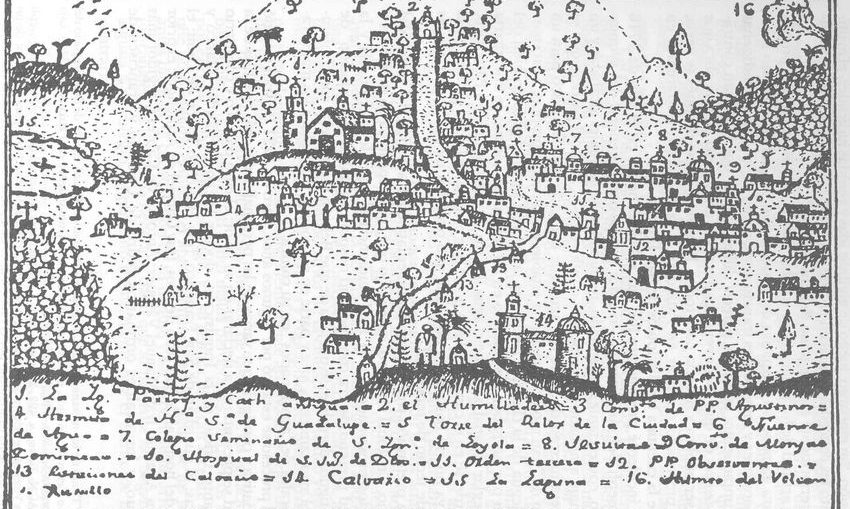 2
16
15
6
7
8
9
12
19
13
14
1. La Ygª Parroqˡ y Cath antigua = 2. el Humilladero = 3 Convᵗᵒ de P.P. Agustinos =
4 Hermita de Nª Sª de Guadalupe. = 5 Torre del Relox de la Ciudad = 6 Fuente
de Agua = 7. Colegio Seminario de S. Ygn.º de Loyola = 8. Jesuitas 9 Convᵗᵒ de Monjas
Dominicas = 10. Hospital de S. Juº de Dios. = 11. Orden tercera = 12. P.P. Observantes. =
13 Estaciones del Calvario = 14. Calvario = 15 La Laguna = 16. Humo del Volcan